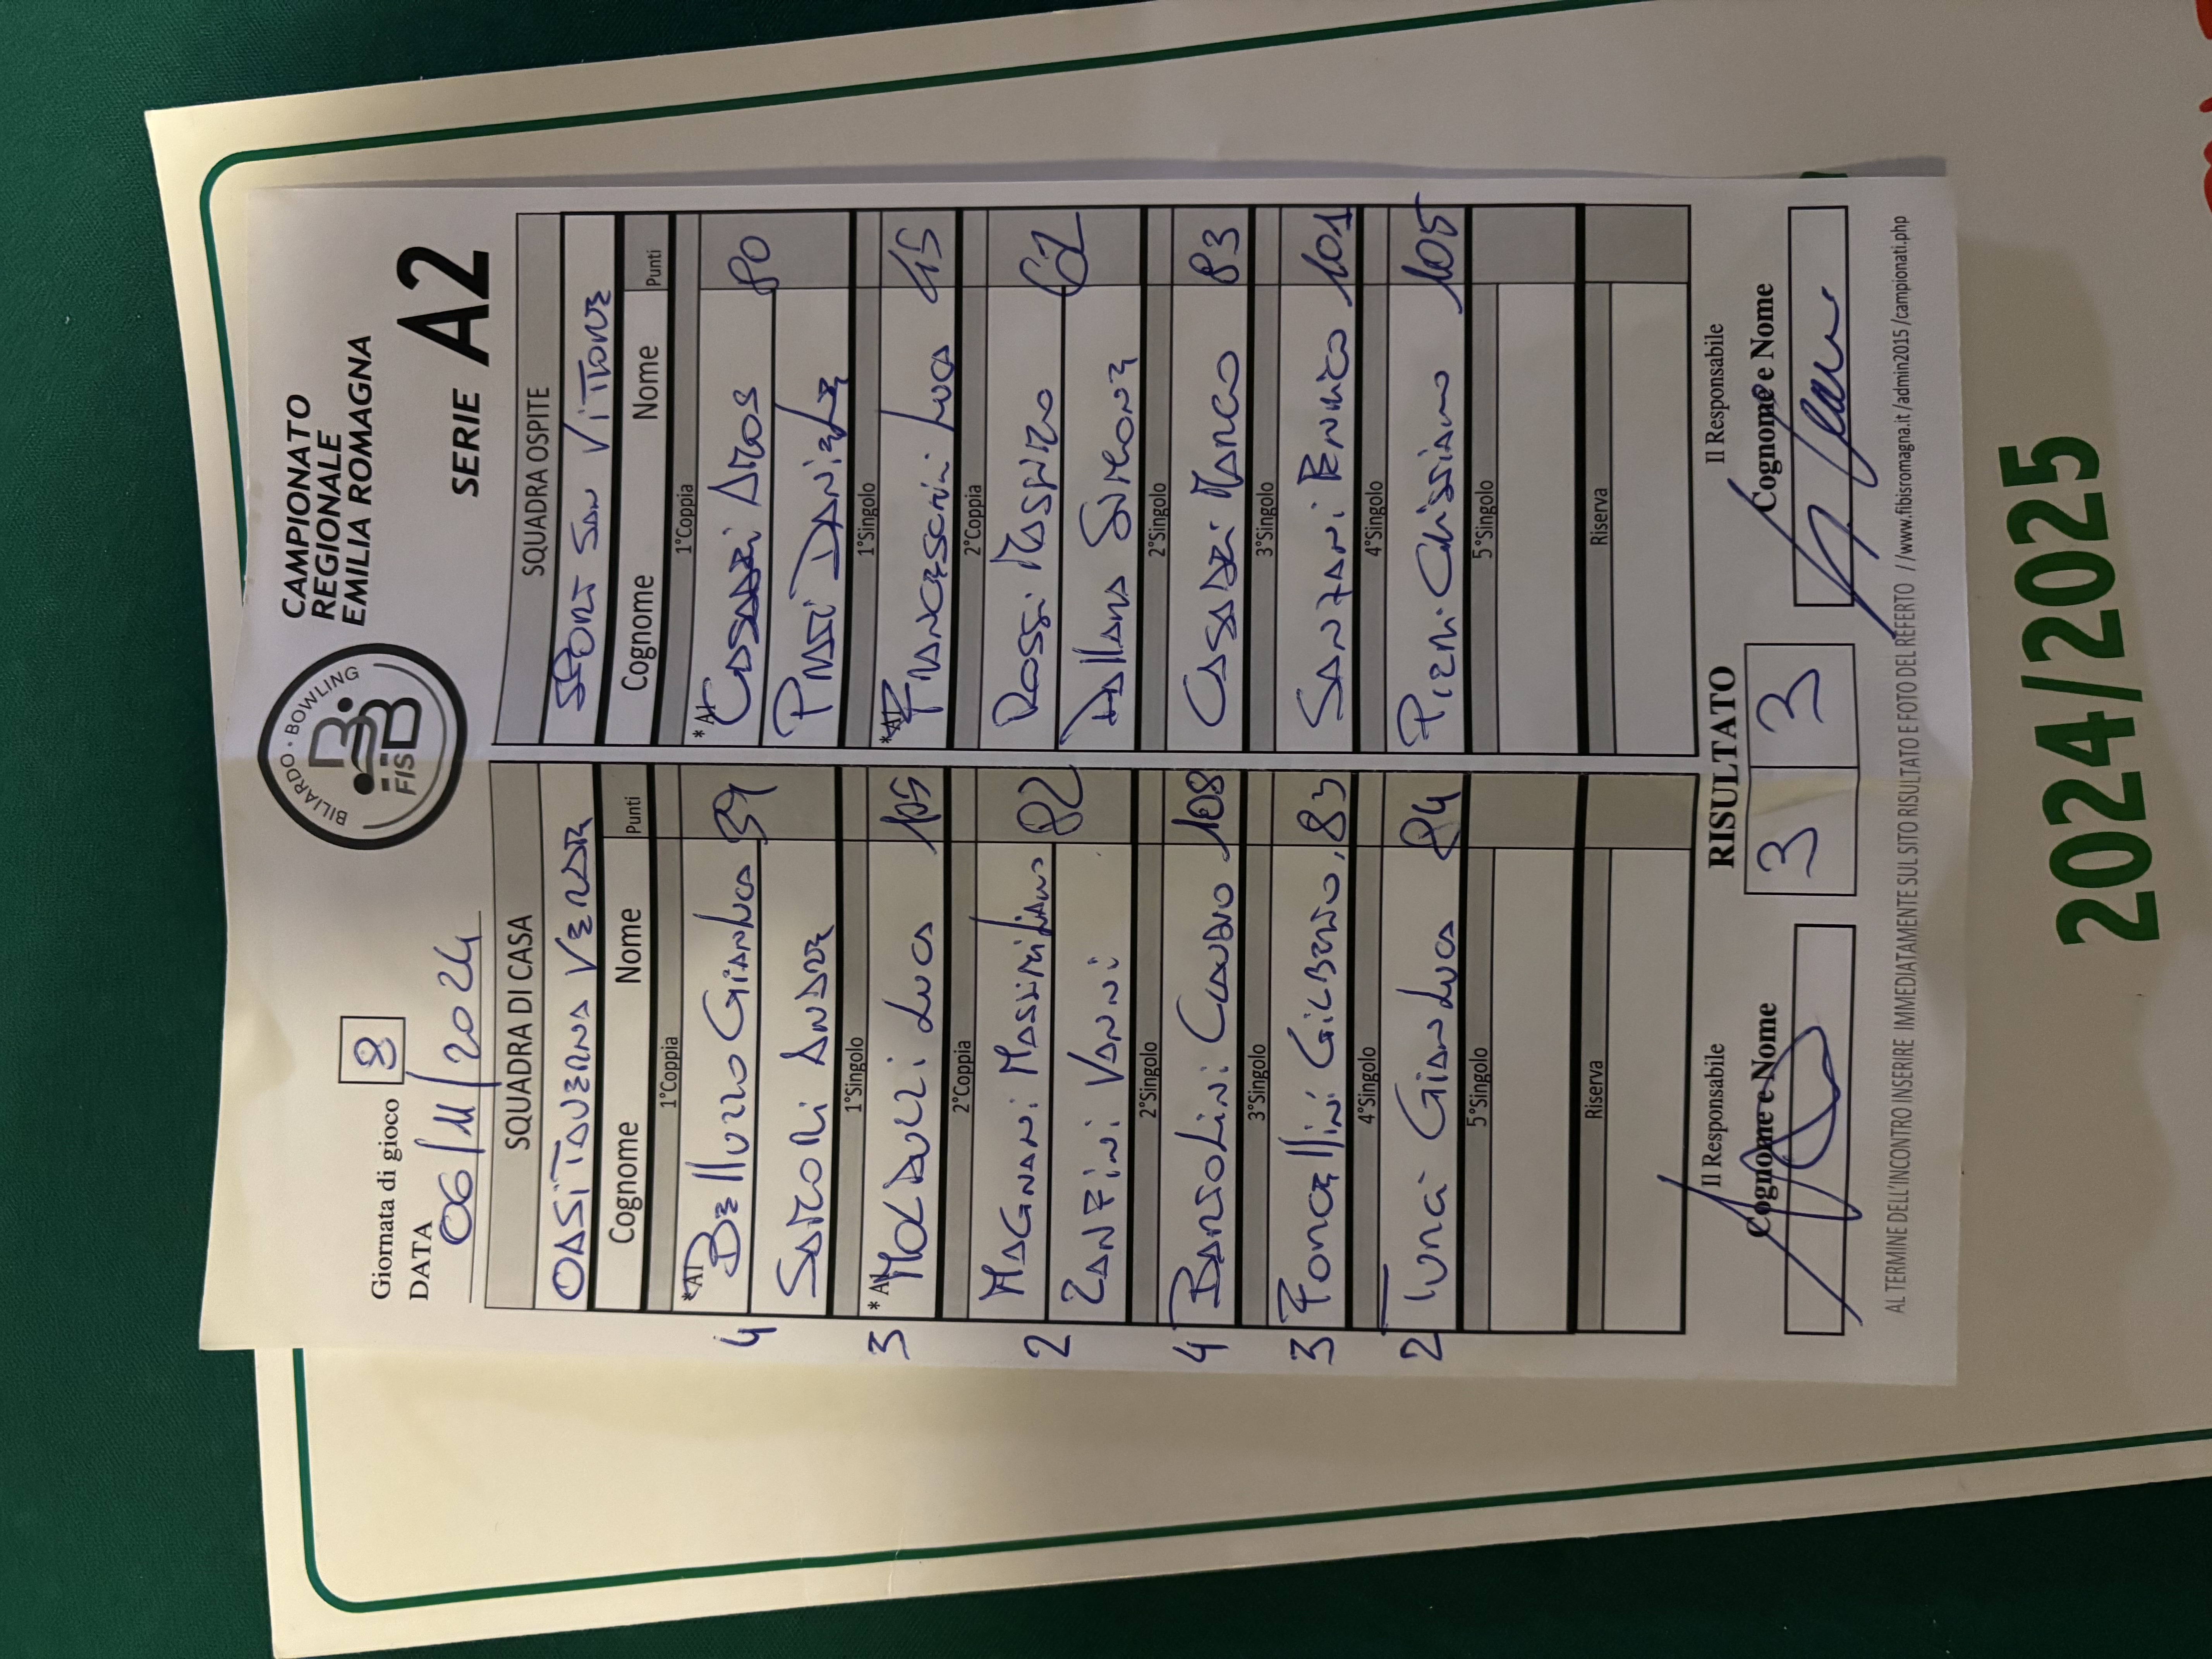 Giornata di gioco 8
DATA 06/11/2024
BILIARDO · BOWLING
FISBB
CAMPIONATO
REGIONALE
EMILIA ROMAGNA
SERIE A2
SQUADRA DI CASA
OASI TAVERNA VERDE
Cognome Nome Punti
1°Coppia
4 *A1 Belluzzo Gianluca
Sartori Andrea
1°Singolo
3 *A1 Molducci Luca 105
2°Coppia
2 Magnani Massimiliano 82
Zanfini Vanni
2°Singolo
4 Banzolini Claudio 108
3°Singolo
3 Foncellini Gilberto 83
4°Singolo
2 Turci Gianluca 84
5°Singolo
Riserva
SQUADRA OSPITE
SPORT SAN VITTORE
Cognome Nome Punti
1°Coppia
*A1 Casadei Atos 80
Prati Daniele
1°Singolo
*A1 Francescini Luca
2°Coppia
Rossi Massimo 62
Dallara Simone
2°Singolo
Casadei Marco 83
3°Singolo
Sanzani Enrico 101
4°Singolo
Pieri Christiano 105
5°Singolo
Riserva
RISULTATO
3 3
Il Responsabile
Cognome e Nome
Il Responsabile
Cognome e Nome
AL TERMINE DELL'INCONTRO INSERIRE IMMEDIATAMENTE SUL SITO RISULTATO E FOTO DEL REFERTO //www.fibisromagna.it/admin2015/campionati.php
2024/2025